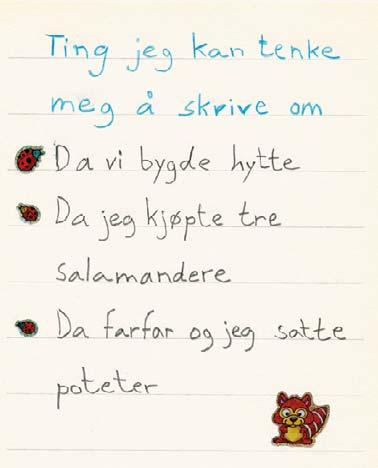 Ting jeg kan tenke
meg å skrive om
Da vi bygde hytte
Da jeg kjøpte tre
salamandere
Da farfar og jeg satte
poteter